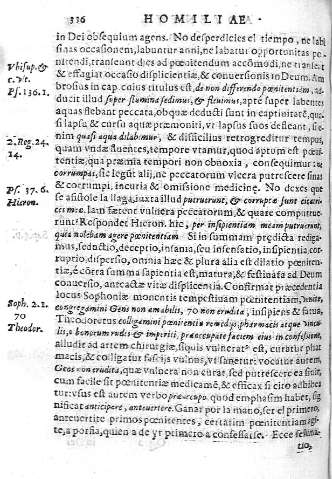 326 HOMILIAE
in Dei obsequium agens. No desperdicies el tiempo, ne la-
si as occasionem, labuntur anni, ne labatur opportunitas pe
nitendi, transeunt dies ad pœnitendum accõmodi, ne transeat
Vbi sup. &
& effugiat occasio displicientiæ, & conversionis in Deum. Am
c. Vt.
brosius in cap. cuius titulus est, de non differendo pœnitentiam, ad-
Ps. 136. 1.
ducit illud super flumina sedimus, & flevimus, aptè super labentes
aquas flebant peccata, obquæ deducti sunt in captivitatẽ, qua
si lapsu & cursu aquæ præmoniti, vt lapsus suos defleant, si-
2. Reg. 24.
nim quasi aqua dilabimur, & dificilius retrogreditur tempus,
14.
quam vndæ fluentes, tempore vtamur, quod aptum est pœni-
tentiæ, qua præmia tempori non obnoxia, consequimur
corrumpas, sic legũt alij, ne peccatorum vlcera putrescere sinas
& corrumpi, incuria & omissione medicinæ. No dexes que
Ps. 37. 6.
se afistole la llaga, iuxta illud putruerunt, & corruptæ sunt cicatri
Hieron.
ces meæ. Iam fætent vulnera peccatorum, & quare computrue
runt? Respondet Hieron. hæc, per insipientiam meam putruerunt,
quia nolebam agere pœnitentiam Si in summam prædicta redigi-
mus, seductio, deceptio, insania, seu insensatio, insipientia, cor
ruptio, dispersio, omnia hæc & plura alia est dilatio pœniten-
tiæ, è cõtra summa sapientia est, matura, & festinãta ad Deum
conversio, anteactæ vitæ displicentia. Confirmat præcedentia
Soph. 2. 1.
locus Sophoniæ monentis tempestiuam pœnitentiam,
70
congregamini Gens non amabilis, 70 non erudita, insipiens & fatua,
Theodor.
Theodoretus colligamini pœnitentiæ remedijs, pharmacis atque vincu
lis, o bonorum rudis & imperiti, præoccupate faciem eius in confessione,
alludit ad artem chirurgiæ, siquis vulneratꝰ eſt, curatur phar
macis, & colligatur fascijs vulnus, vt sanetur, vocatur autem,
Gens non erudita, quæ vulnera non curat, sed putrescere ea sinit,
cum facile sit pœnitentiæ medicamẽ, & efficax si cito adhibea
tur: vsus est autem verbo præoccupo. quod emphasim habet, sig
nificat anticipere, anteuertere. Ganar por la mano, ser el primero,
anteuertite primos pœnitentes, certatim pœnitentiam agi-
te, a porfia, quien a de yr primero a confessarse. Ecce festina-
tio,